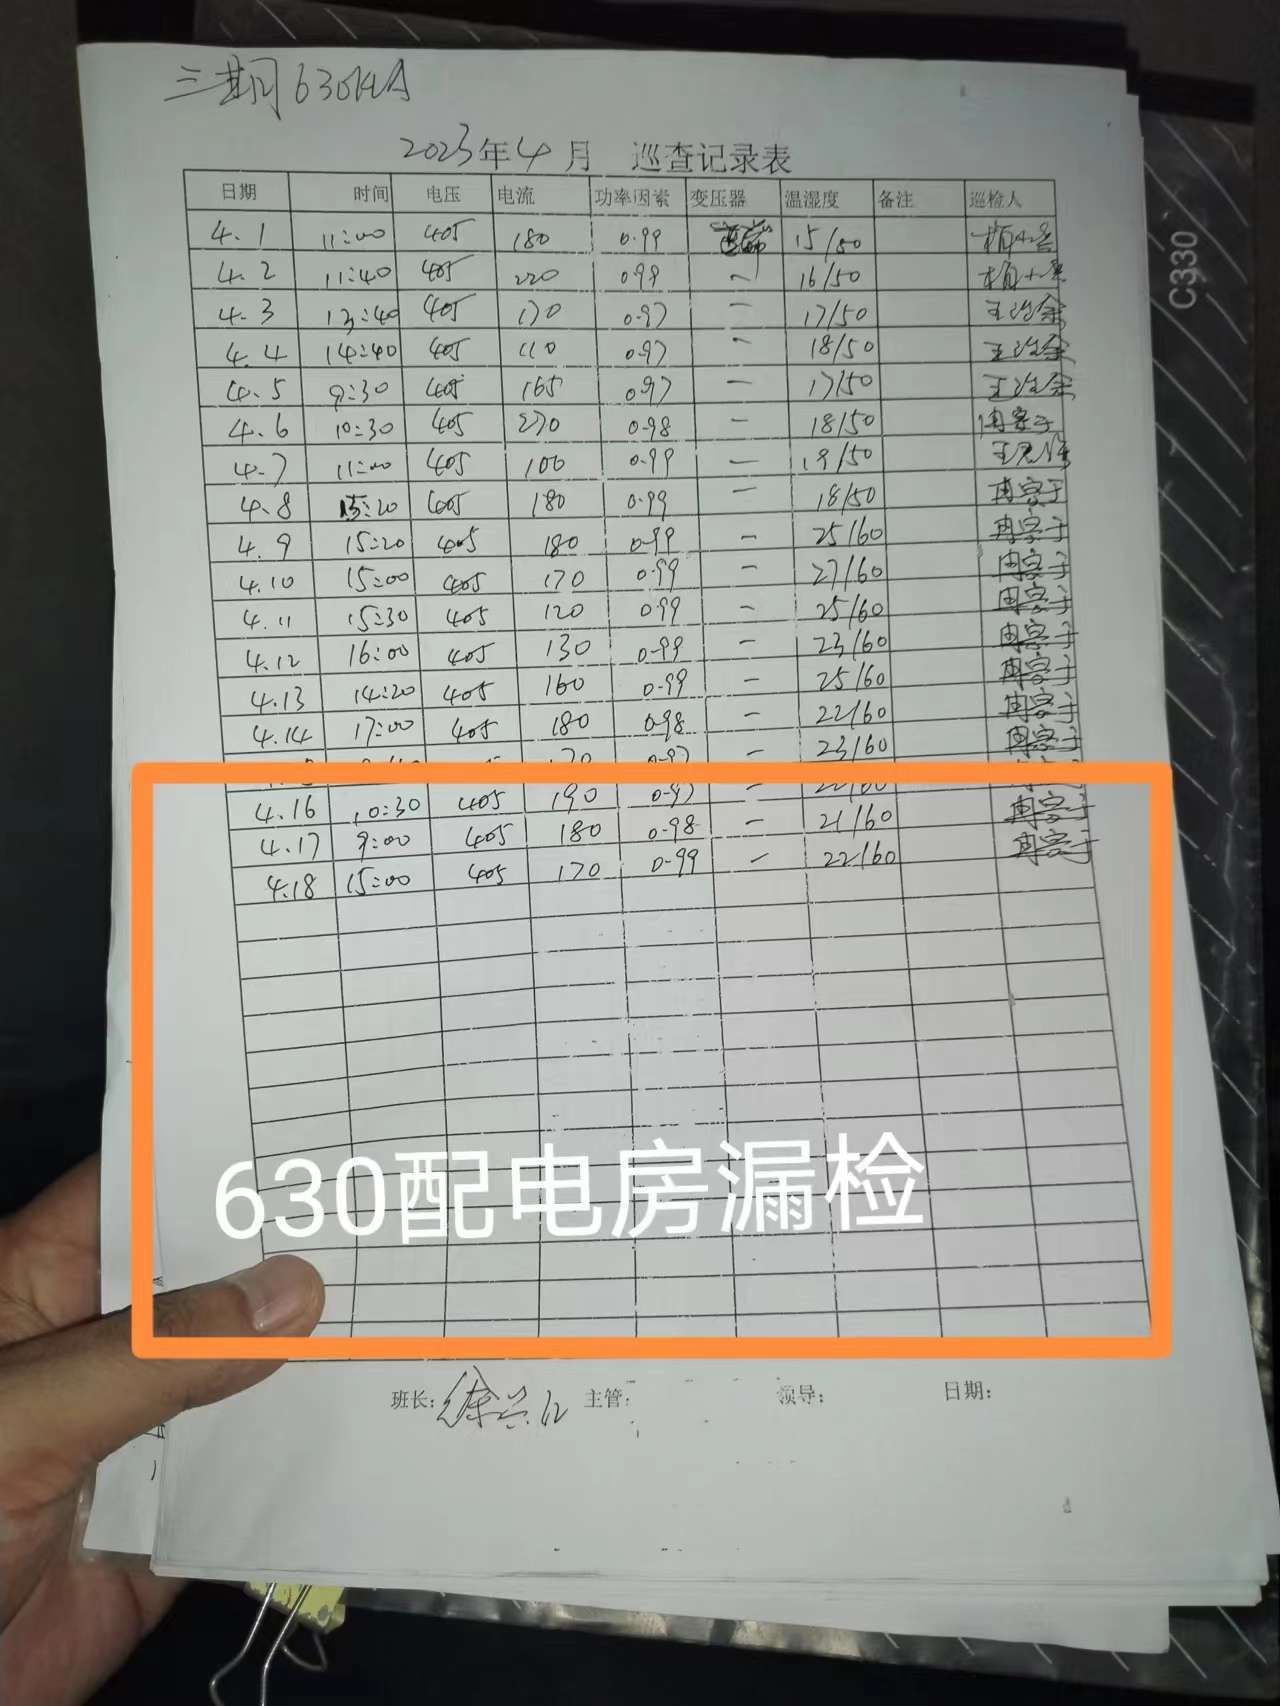 三期 630KVA
2023年4月 巡查记录表
日期 时间 电压 电流 功率因素 变压器 温湿度 备注 巡检人
4.1 11:00 405 180 0.99 正常 15/50
4.2 11:40 405 220 0.98 — 16/50
4.3 13:40 405 170 0.97 — 17/50
4.4 14:40 405 110 0.97 — 18/50
4.5 9:30 405 165 0.97 — 17/50
4.6 10:30 405 270 0.98 — 18/50
4.7 11:00 405 100 0.99 — 19/50
4.8 15:20 405 180 0.99 — 18/50
4.9 15:20 405 180 0.99 — 25/60
4.10 15:00 405 170 0.99 — 27/60
4.11 15:30 405 120 0.99 — 25/60
4.12 16:00 405 130 0.99 — 23/60
4.13 14:20 405 160 0.99 — 25/60
4.14 17:00 405 180 0.98 — 22/60
170 0.97 — 23/60
4.16 10:30 405 190 0.97 — 22/60
4.17 9:00 405 180 0.98 — 21/60
4.18 15:00 405 170 0.99 — 22/60
630配电房漏检
班长: 主管: 领导: 日期:
C330